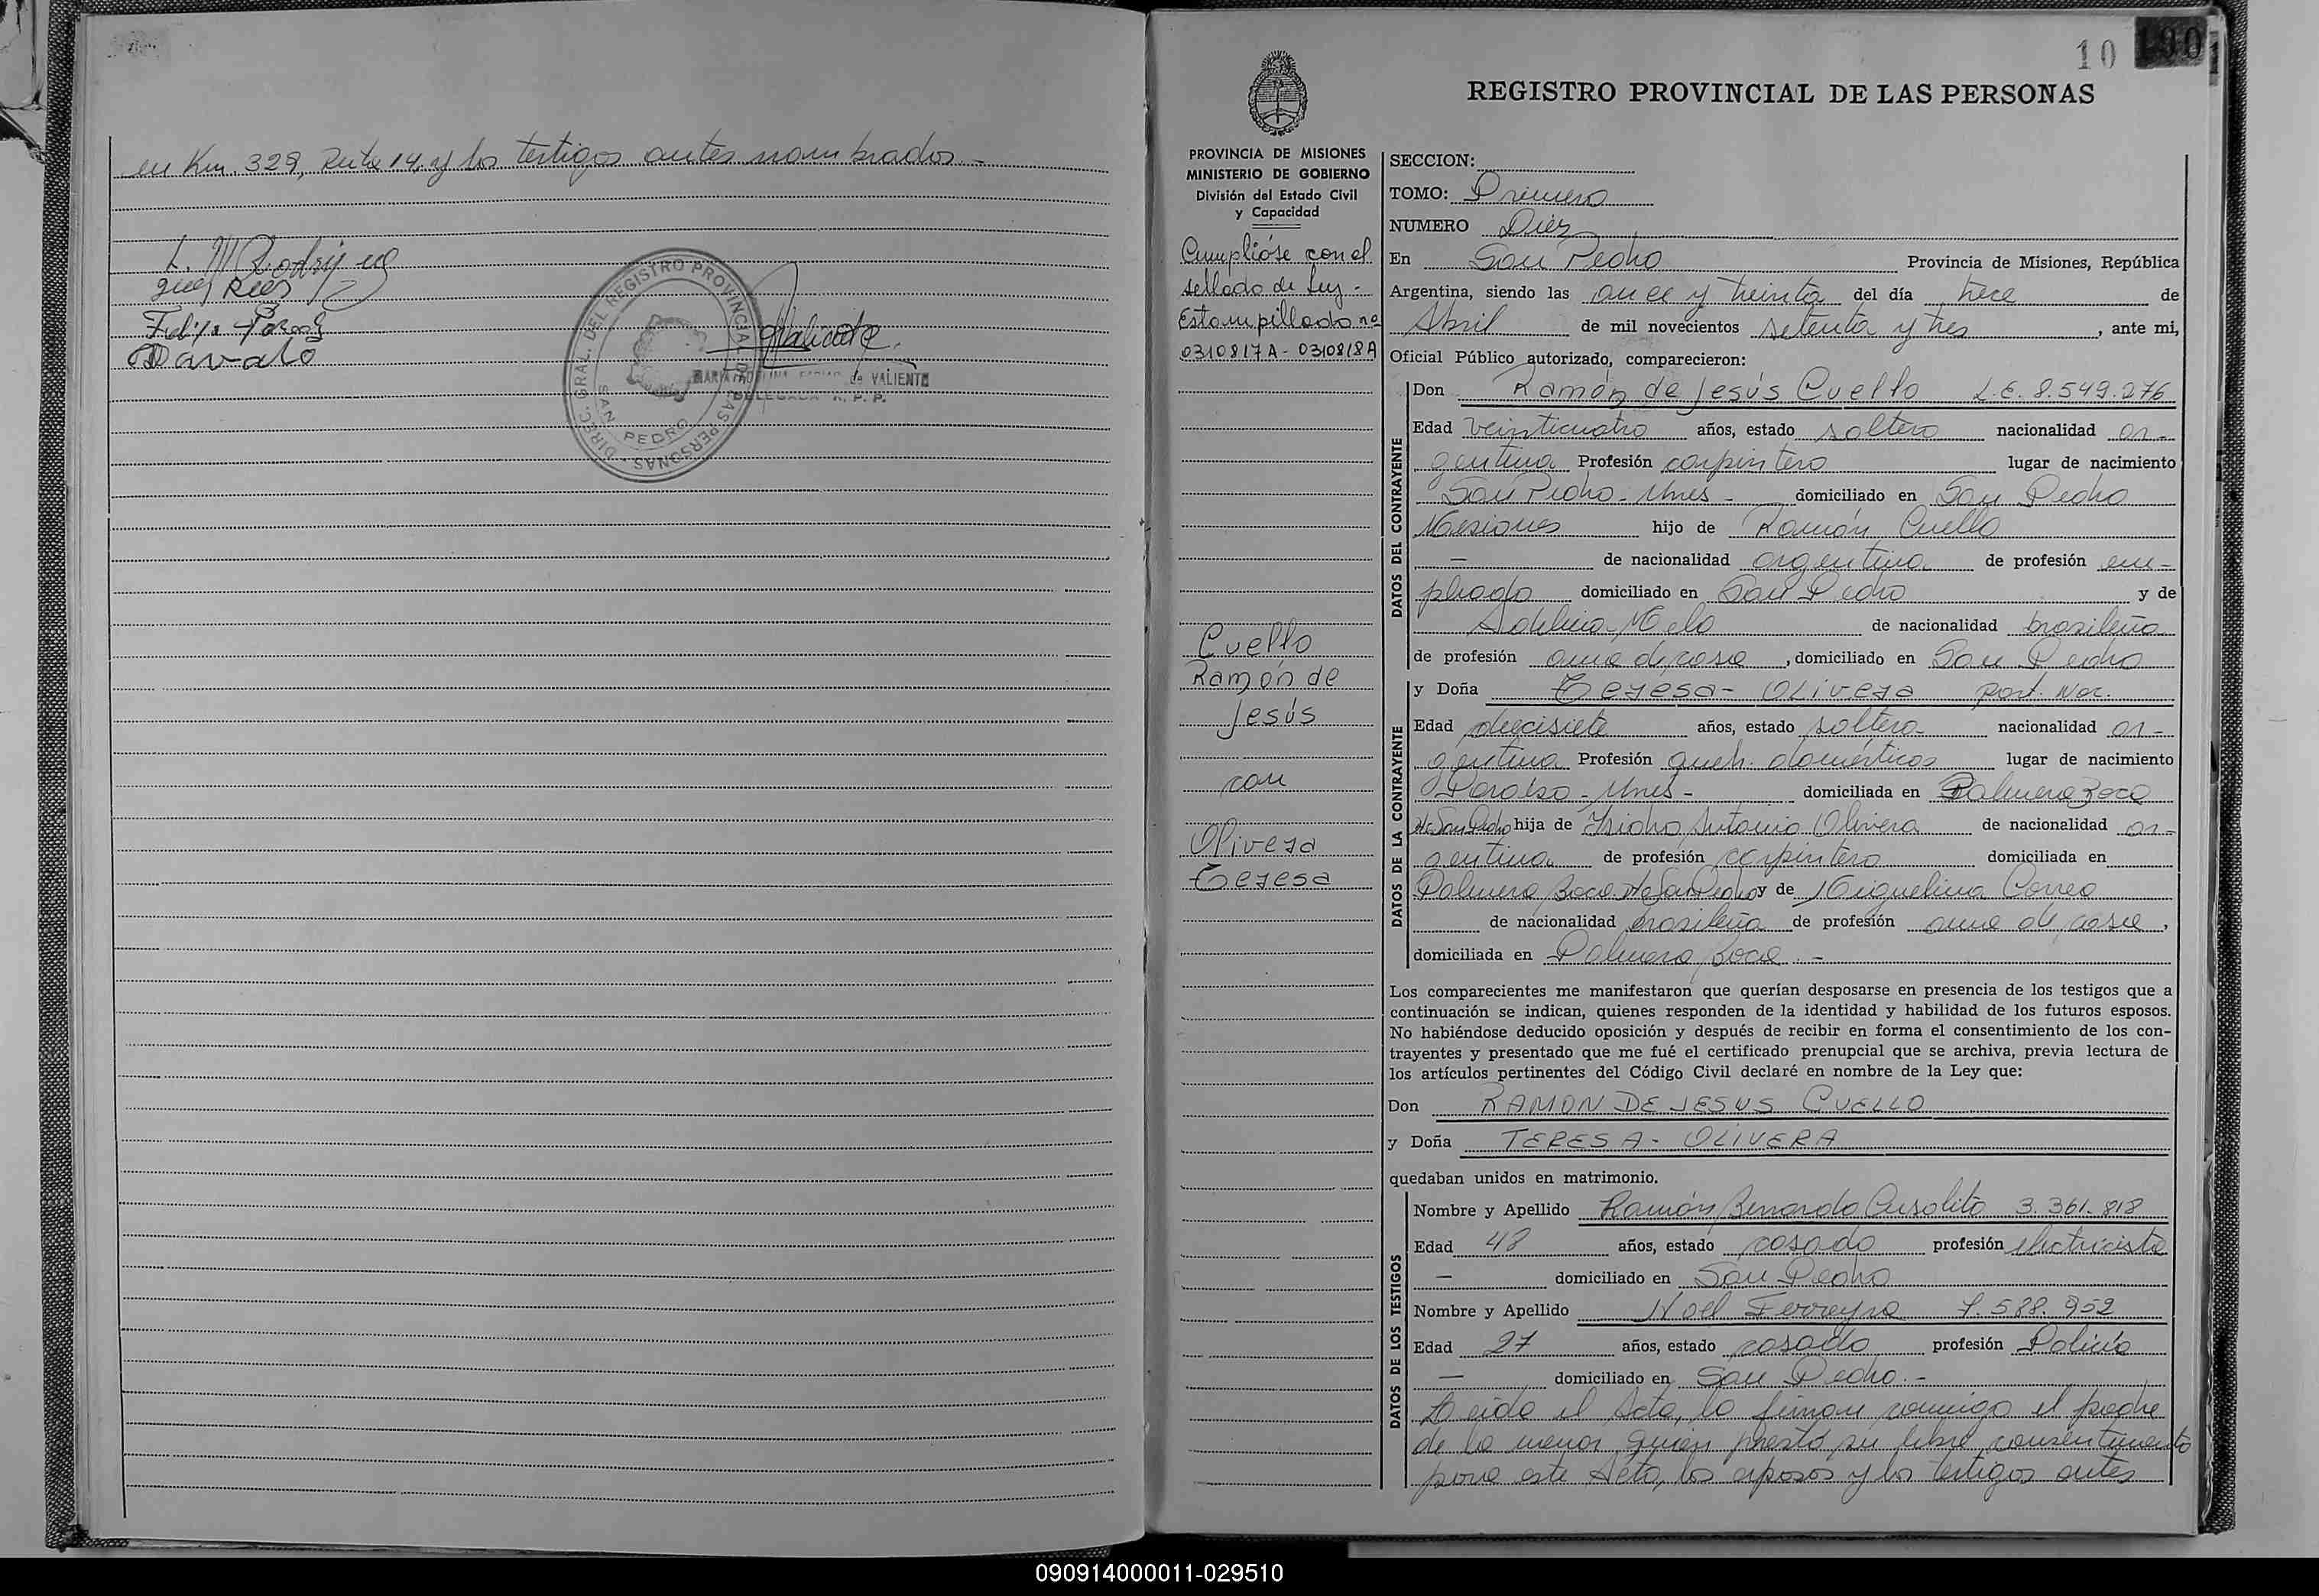 en Km. 329, Ruta 14, y los testigos antes nombrados.-
L. M Rodrig
Davalo
DIREC. GRAL. DEL REGISTRO PROVINCIAL DE LAS PERSONAS
SAN PEDRO
de VALIENTE
DELEGADA R. P. P.
10
REGISTRO PROVINCIAL DE LAS PERSONAS
PROVINCIA DE MISIONES
MINISTERIO DE GOBIERNO
División del Estado Civil
y Capacidad
Cumplióse con el
sellado de Ley -
Estampillado nº
0310817A - 0310818A
Cuello
Ramón de
Jesús
con
Olivera
Teresa
SECCION:
TOMO: Primero
NUMERO Diez
En San Pedro Provincia de Misiones, República
Argentina, siendo las once y treinta del día trece de
Abril de mil novecientos setenta y tres, ante mi,
Oficial Público autorizado, comparecieron:
DATOS DEL CONTRAYENTE
Don Ramón de Jesús Cuello L.E. 8.549.276
Edad veinticuatro años, estado soltero nacionalidad ar-
gentina Profesión carpintero lugar de nacimiento
San Pedro - Mnes - domiciliado en San Pedro
Misiones hijo de Ramón Cuello
— de nacionalidad argentina de profesión em-
pleado domiciliado en San Pedro y de
Adelina Melo de nacionalidad brasileña
de profesión ama de casa, domiciliado en San Pedro
DATOS DE LA CONTRAYENTE
y Doña Teresa - Olivera Part. Nac.
Edad diecisiete años, estado soltera nacionalidad ar-
gentina Profesión queh. domésticos lugar de nacimiento
Paraíso - Mnes - domiciliada en Palmera Boca
San Pedro hija de Isidro Antonio Olivera de nacionalidad ar-
gentina de profesión carpintero domiciliada en
Palmera Boca San Pedro y de Miguelina Correa
de nacionalidad brasileña de profesión ama de casa,
domiciliada en Palmera Boca.-
Los comparecientes me manifestaron que querían desposarse en presencia de los testigos que a
continuación se indican, quienes responden de la identidad y habilidad de los futuros esposos.
No habiéndose deducido oposición y después de recibir en forma el consentimiento de los con-
trayentes y presentado que me fué el certificado prenupcial que se archiva, previa lectura de
los artículos pertinentes del Código Civil declaré en nombre de la Ley que:
Don RAMON DE JESUS CUELLO
y Doña TERESA - OLIVERA
quedaban unidos en matrimonio.
DATOS DE LOS TESTIGOS
Nombre y Apellido Ramón Bernardo Cusolito 3.361.818
Edad 48 años, estado casado profesión electricista
— domiciliado en San Pedro
Nombre y Apellido Noel Ferreyra 7.588.952
Edad 27 años, estado casado profesión Policía
— domiciliado en San Pedro.-
Leída el Acta, la firman conmigo el padre
de la menor quien prestó su libre consentimiento
para este Acto, los esposos y los testigos antes
090914000011-029510